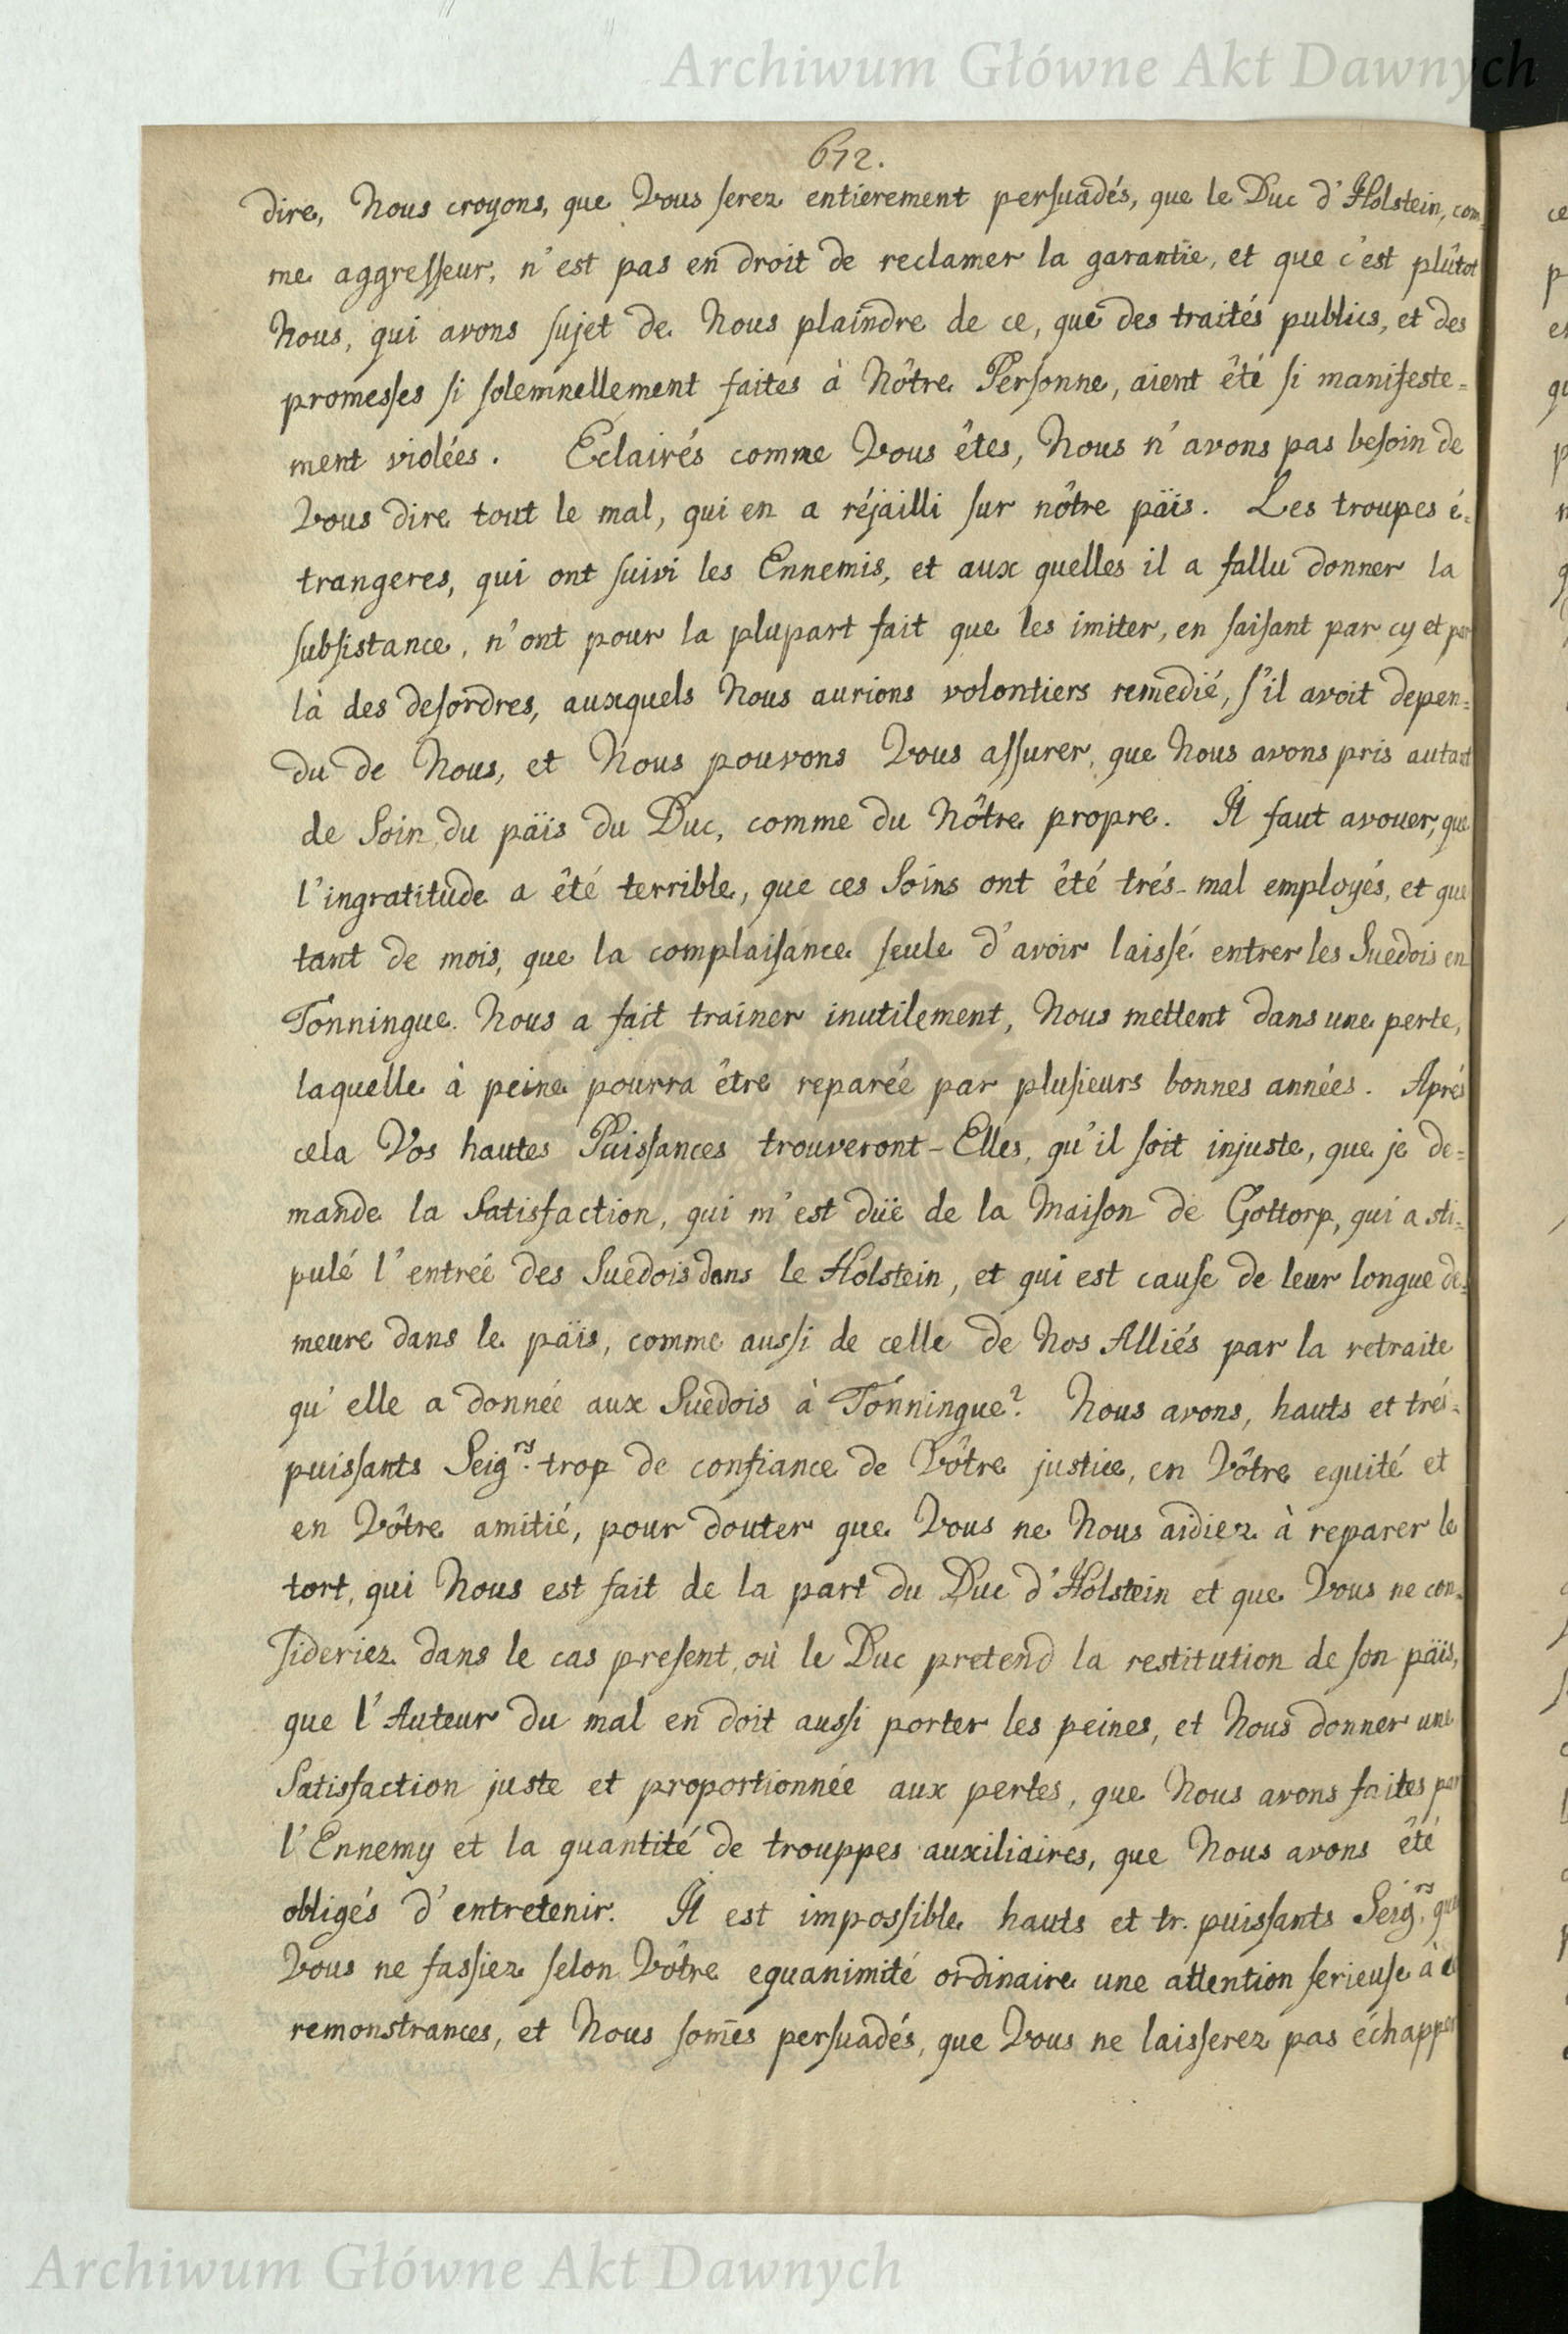 Archiwum Główne Akt Dawnych
672.
dire, Nous croyons, que Vous serez entierement persuadés, que le Duc d'Holstein, com-
me aggresseur, n'est pas en droit de reclamer la garantie, et que c'est plûtot
Nous, qui avons sujet de Nous plaindre de ce, que des traités publics, et des
promesses si solemnellement faites à Nôtre Personne, aient êté si manifeste=
ment violées. Eclairés comme Vous êtes, Nous n'avons pas besoin de
Vous dire tout le mal, qui en a réjailli sur nôtre païs. Les troupes é=
trangeres, qui ont suivi les Ennemis, et aux quelles il a fallu donner la
subsistance, n'ont pour la plupart fait que les imiter, en faisant par cy et par
là des desordres, auxquels Nous aurions volontiers remedié, s'il avoit depen=
du de Nous, et Nous pouvons Vous assurer, que Nous avons pris autant
de Soin du païs du Duc, comme du Nôtre propre. Il faut avouer, que
l'ingratitude a êté terrible, que ces Soins ont êté trés-mal employés, et que
tant de mois, que la complaisance seule d'avoir laissé entrer les Suedois en
Tonningue Nous a fait trainer inutilement, Nous mettent dans une perte,
laquelle à peine pourra être reparée par plusieurs bonnes années. Aprés
cela Vos hautes Puissances trouveront-Elles, qu'il soit injuste, que je de=
mande la Satisfaction, qui m'est düe de la Maison de Gottorp, qui a sti=
pulé l'entreé des Suedois dans le Holstein, et qui est cause de leur longue de=
meure dans le païs, comme aussi de celle de Nos Alliés par la retraite
qu'elle a donnée aux Suedois à Tonningue? Nous avons, hauts et trés-
puissants Seigrs. trop de confiance de Vôtre justice, en Vôtre equité et
en Vôtre amitié, pour douter que Vous ne Nous aidiez à reparer le
tort, qui Nous est fait de la part du Duc d'Holstein et que Vous ne con=
sideriez dans le cas present, où le Duc pretend la restitution de son païs,
que l'Auteur du mal en doit aussi porter les peines, et Nous donner une
Satisfaction juste et proportionnée aux pertes, que Nous avons faites par
l'Ennemy et la quantité de trouppes auxiliaires, que Nous avons êté
obligés d'entretenir. Il est impossible hauts et tr. puissants Seigrs. que
Vous ne fassiez selon Vôtre equanimité ordinaire une attention serieuse à
remonstrances, et Nous som̃es persuadés, que Vous ne laisserez pas échapper
Archiwum Główne Akt Dawnych